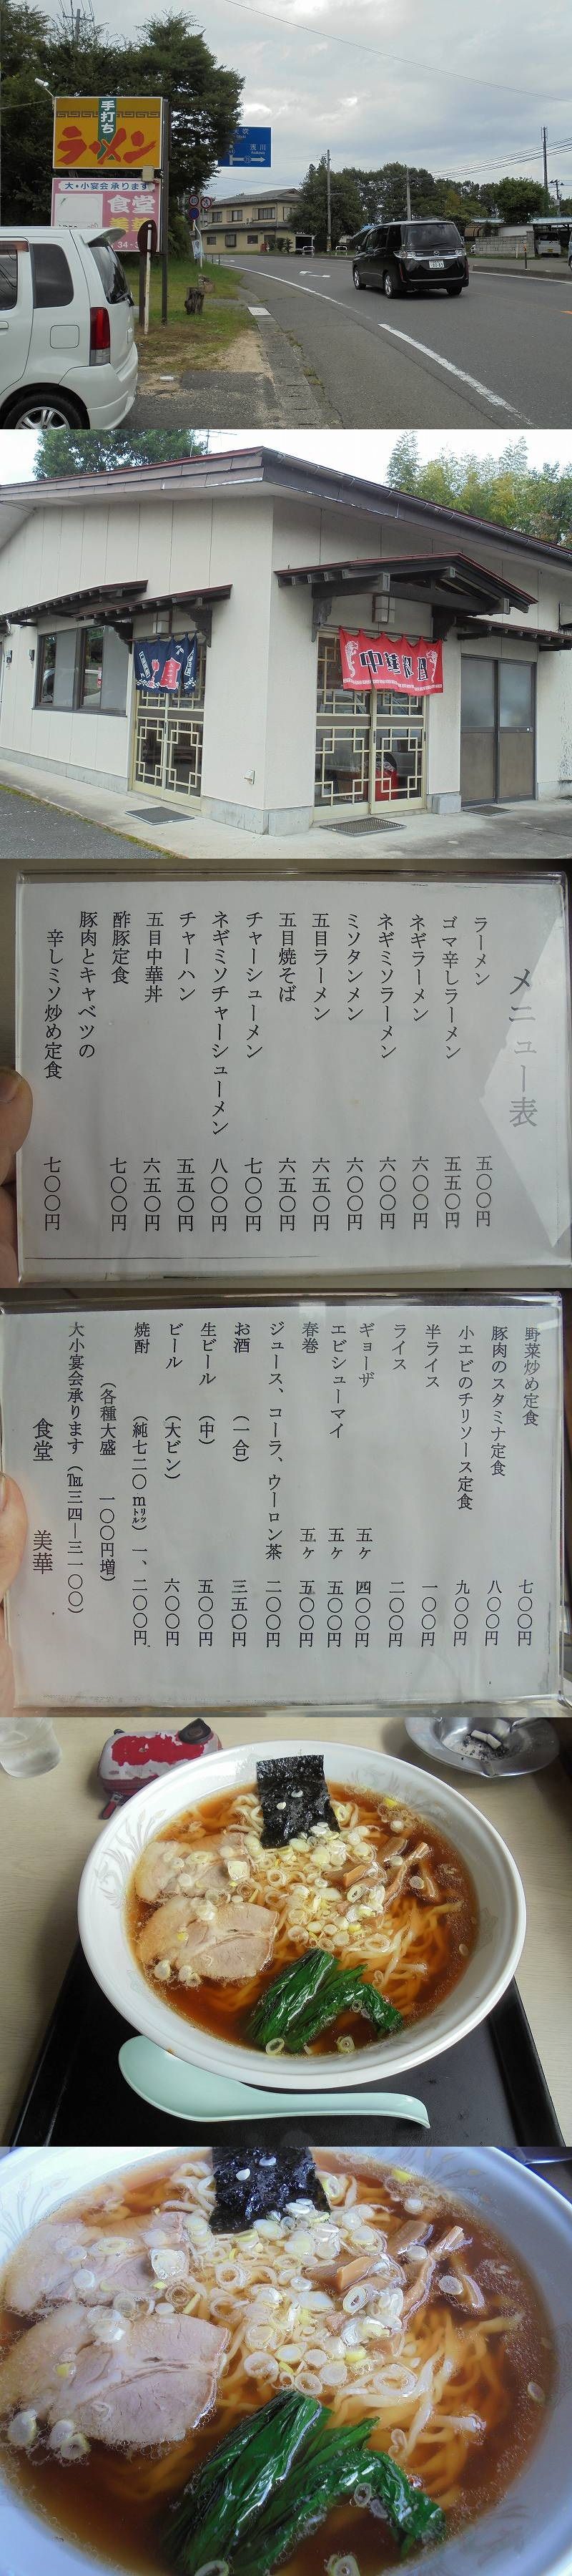 手打ち
ラーメン
大・小宴会承ります
食堂
美華
浅川
メニュー表
ラーメン 五〇〇円
ゴマ辛しラーメン 五五〇円
ネギラーメン 六〇〇円
ネギミソラーメン 六〇〇円
ミソタンメン 六〇〇円
五目ラーメン 六五〇円
五目焼そば 六五〇円
チャーシューメン 七〇〇円
ネギミソチャーシューメン 八〇〇円
チャーハン 五五〇円
五目中華丼 六五〇円
酢豚定食 七〇〇円
豚肉とキャベツの
辛しミソ炒め定食 七〇〇円
野菜炒め定食 七〇〇円
豚肉のスタミナ定食 八〇〇円
小エビのチリソース定食 九〇〇円
半ライス 一〇〇円
ライス 二〇〇円
ギョーザ 五ヶ 四〇〇円
エビシューマイ 五ヶ 五〇〇円
春巻 五ヶ 五〇〇円
ジュース、コーラ、ウーロン茶 二〇〇円
お酒 (一合) 三五〇円
生ビール (中) 五〇〇円
ビール (大ビン) 六〇〇円
焼酎 (純七二〇mリットル) 一、二〇〇円
(各種大盛 一〇〇円増)
大小宴会承ります (℡三四―三一〇〇)
食堂 美華